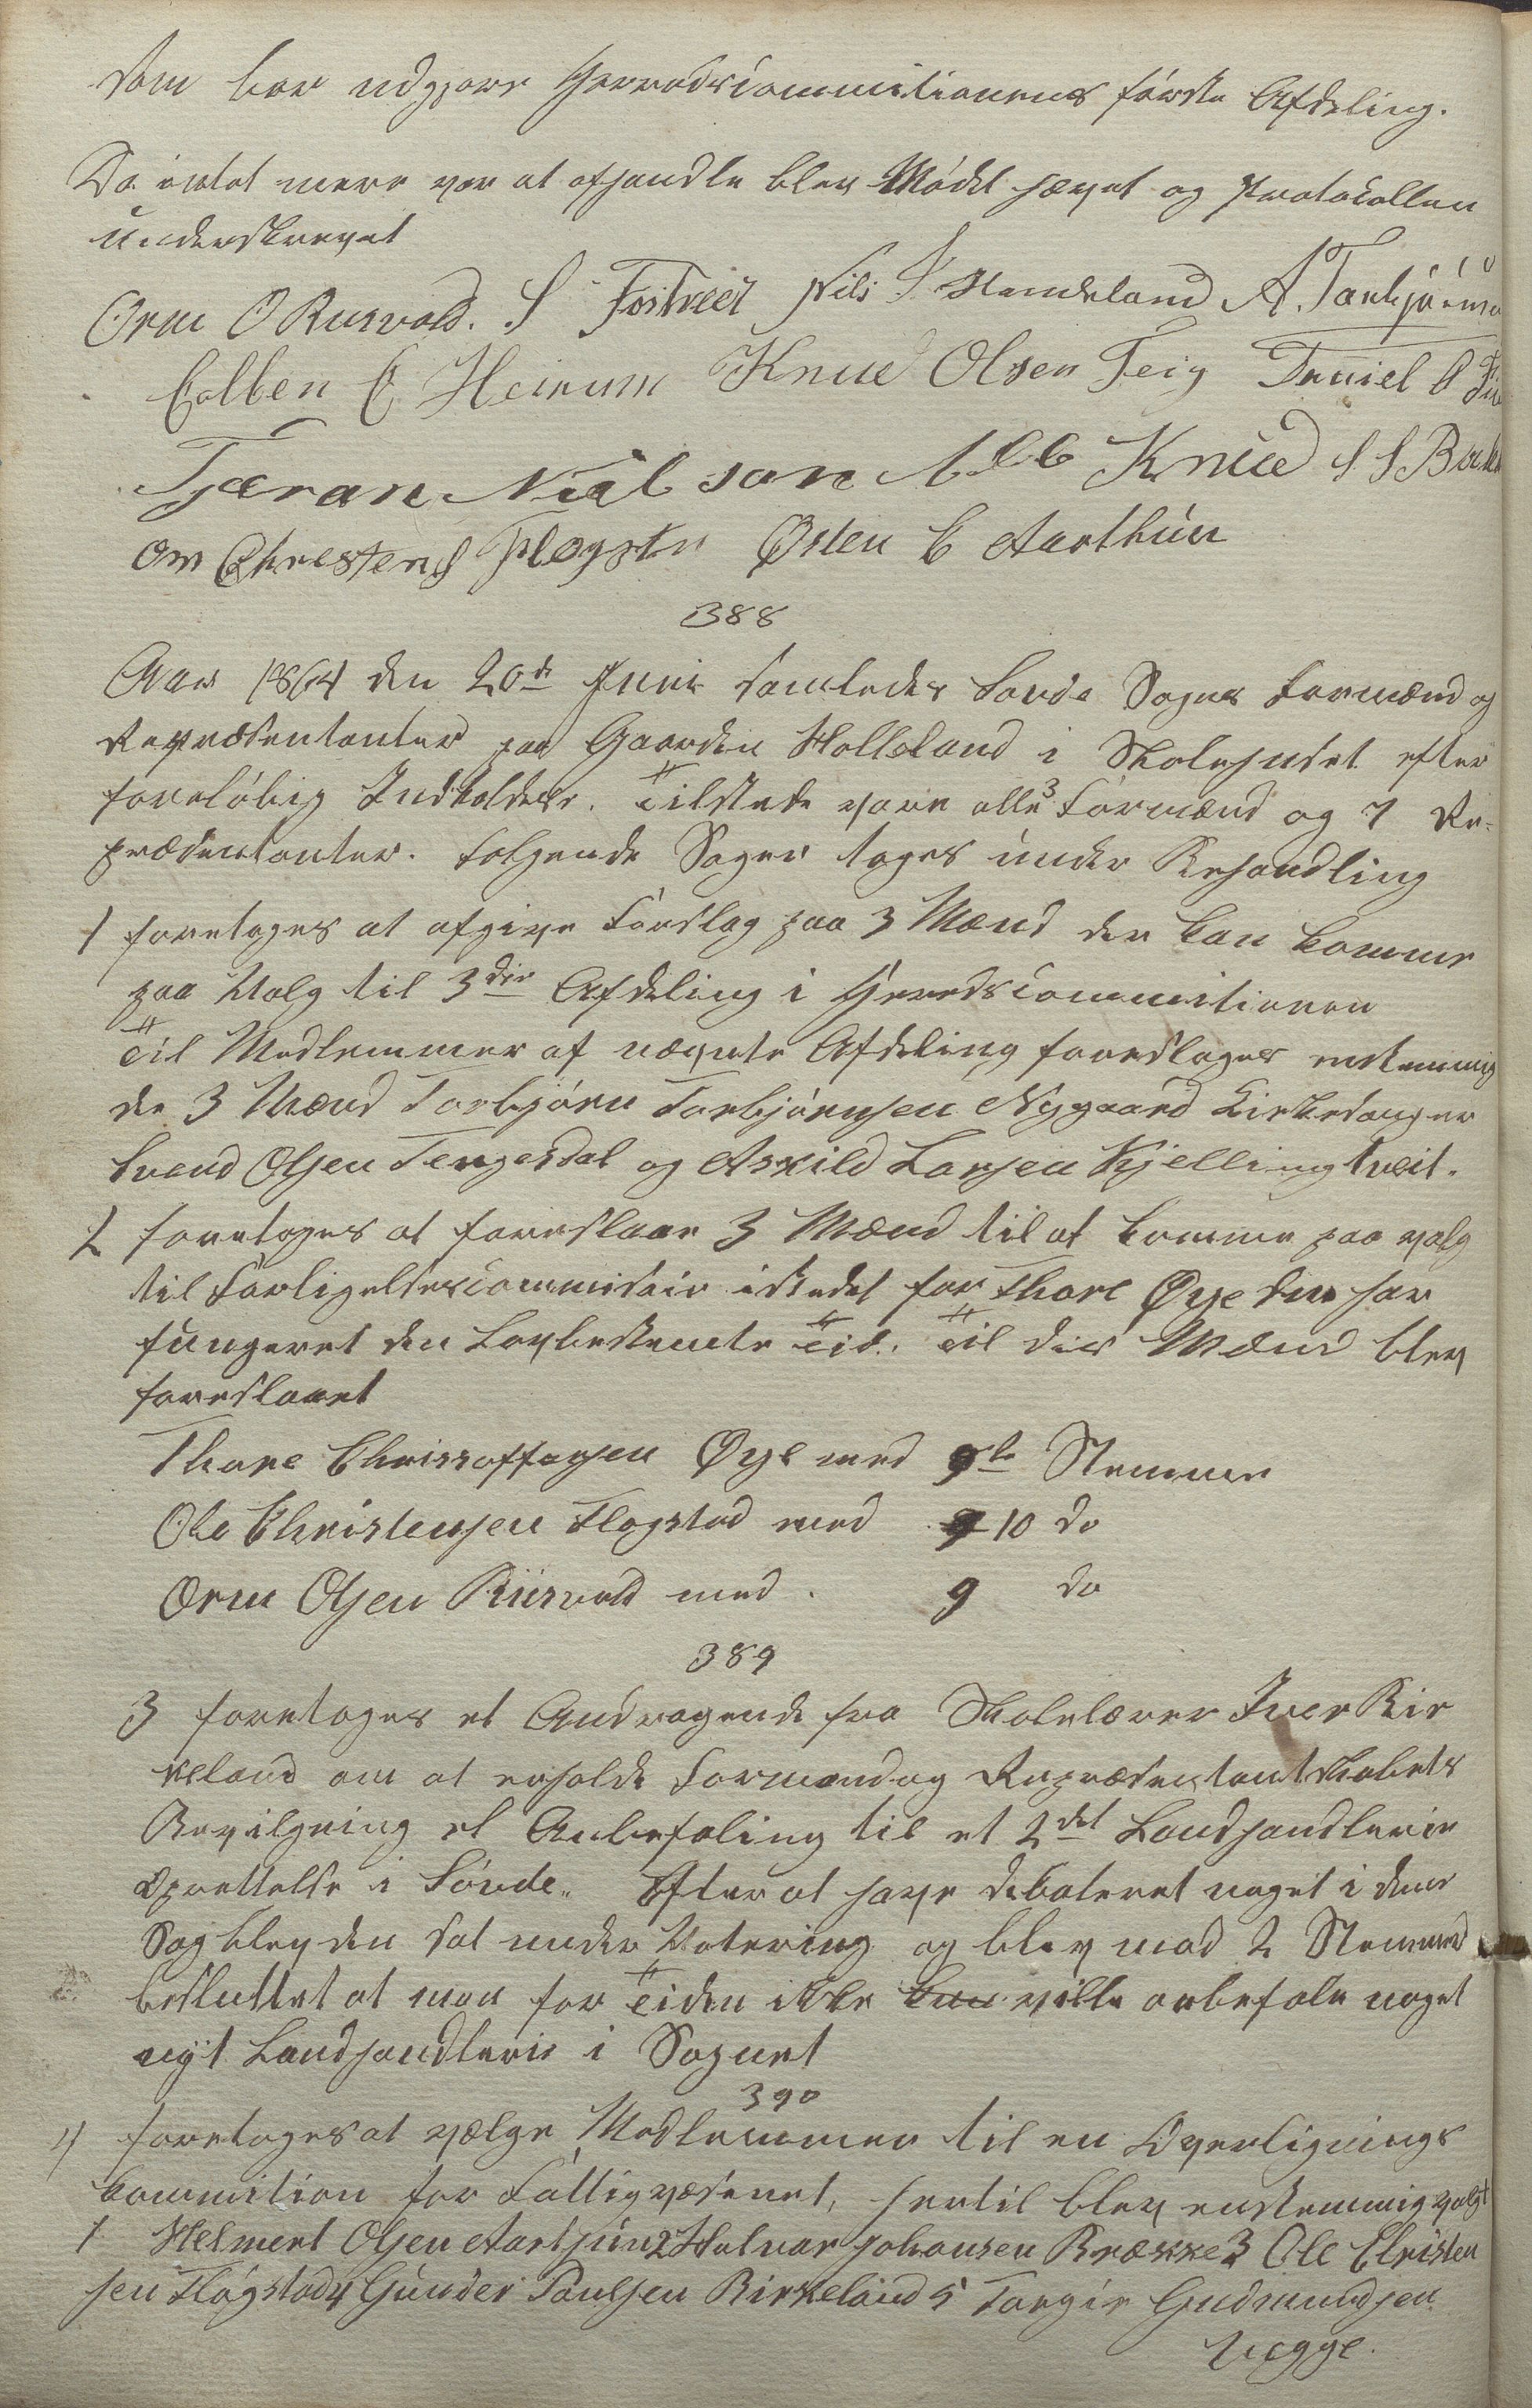 som bør udgjøre Herredscommitionens første Afdeling.
Da intet mere var at afhandle blev Mødet hævet og Protocollen
underskrevet
Orm O Rusvold. S Fostveet Nils S Handeland A. Torbjörns
Colben C Heinum Knud Olsen Teig Daniel O
Tjæran Niel sen Knud S S Birke
Ow Christens Flogstn Østen C Aarthun
388
Aar 1864 den 20de Juni samledes Soude Sogns Formænd og
Repræsentanter paa Gaarden Holleland i Skolehuset efter
foreløbig Indkaldelse. Tilstede vare alle 3 Formænd og 7 Re-
præsentanter. Følgende Sager toges under Behandling
1 foretoges at afgive Forslag paa 3 Mænd der kan komme
paa Valg til 3die Afdeling i Herredscommitionen
Til Medlemmer af nævnte Afdeling foreslages enstemmig
de 3 Mænd Torbjørn Torbjørnsen Nygaard Kirkesanger
Svend Olsen Tengesdal og Askild Larsen Kjellingtveit.
2 foretoges at foreslaae 3 Mænd til at komme paa valg
til Forligelsescommisair istedet for Thore Øye som har
fungeret den Lovbestemte Tid. Til dis Mænd blev
foreslaaet
Thore Christoffersen Øye med 9 Stemmer
Ole Christensen Flogstad med 9 10 do
Orm Olsen Rusvold med 9 do
389
3 foretoges et Andragende fra Skolelærer Iver Bir
keland om at erholde Formænd og Repræsentantskabets
Bevilgning et Anbefaling til et 2det Landhandlerie
Oprettelse i Søvde. Efter at have debateret noget i denne
Sag blev den sat under Votering og blev mod 2 Stemmer
besluttet at man for Tiden ikke kan ville anbefale noget
nyt Landhandleri i Sognet
390
4 foretoges at vælge Medlemmer til en Overlignings
kommition for Fattigvæsenet, hertil blev enstemmig valgt
1 Helmert Olsen Aarthun 2 Halvar Johansen Brække 3 Ole Christen
sen Flögstad 4 Gunder Poulsen Birkeland 5 Torgir Gudmundsen
Vegge.